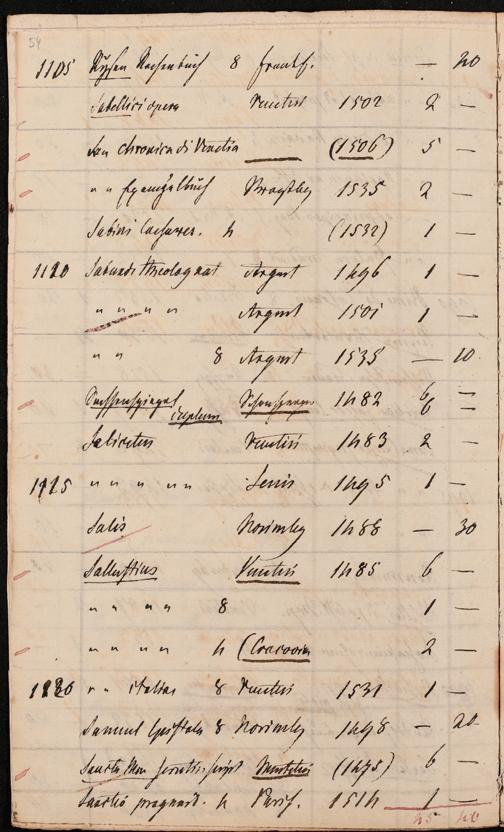 54
1105 Rysen Rechenbuch 8 Frankf. — 20
Sabellici opera Venetiis 1502 2 —
San Chronica di Venetia (1506) 5 —
" " Evangelbuch 1535 2 —
Sabini Caesares. 4 (1532) 1 —
1120 Sabundi theolog nat Argent 1496 1 —
" " " " Argent 1501 1 —
" " 8 Argent 1535 — 10
Sachsenspiegel 1482 6 —
duplum 6 —
Salicetus Venetiis 1483 2 —
1125 " " " " " 1495 1 —
Salis Norimbg 1488 — 30
Sallustius Venetiis 1485 6 —
" " " " 8 1 —
" " " " 4 (Cracoviae 2 —
1130 " " italice 8 Venetiis 1531 1 —
Samuel Epistola 8 Norimbg 1498 — 20
(1475) 6 —
Sanctio pragmat. 4 Paris. 1514 1 —
45 40